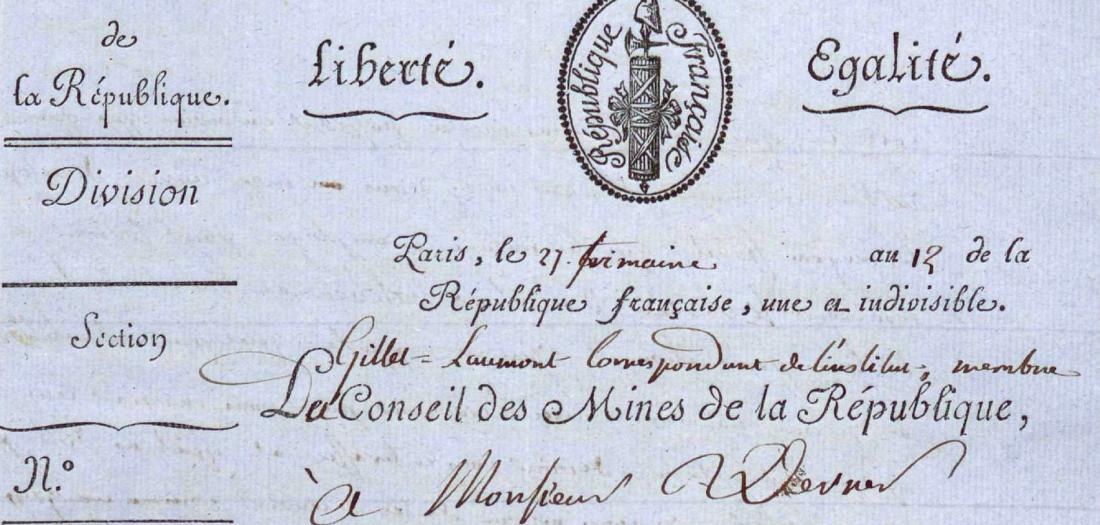 de
la République.
Division
Section
N.º
Liberté.
République Française
Egalité.
Paris, le 27 frimaire au 12 de la
République française, une et indivisible.
Gillet = Laumont Correspondant de l'institut, membre
Du Conseil des Mines de la République,
à Monsieur Werner